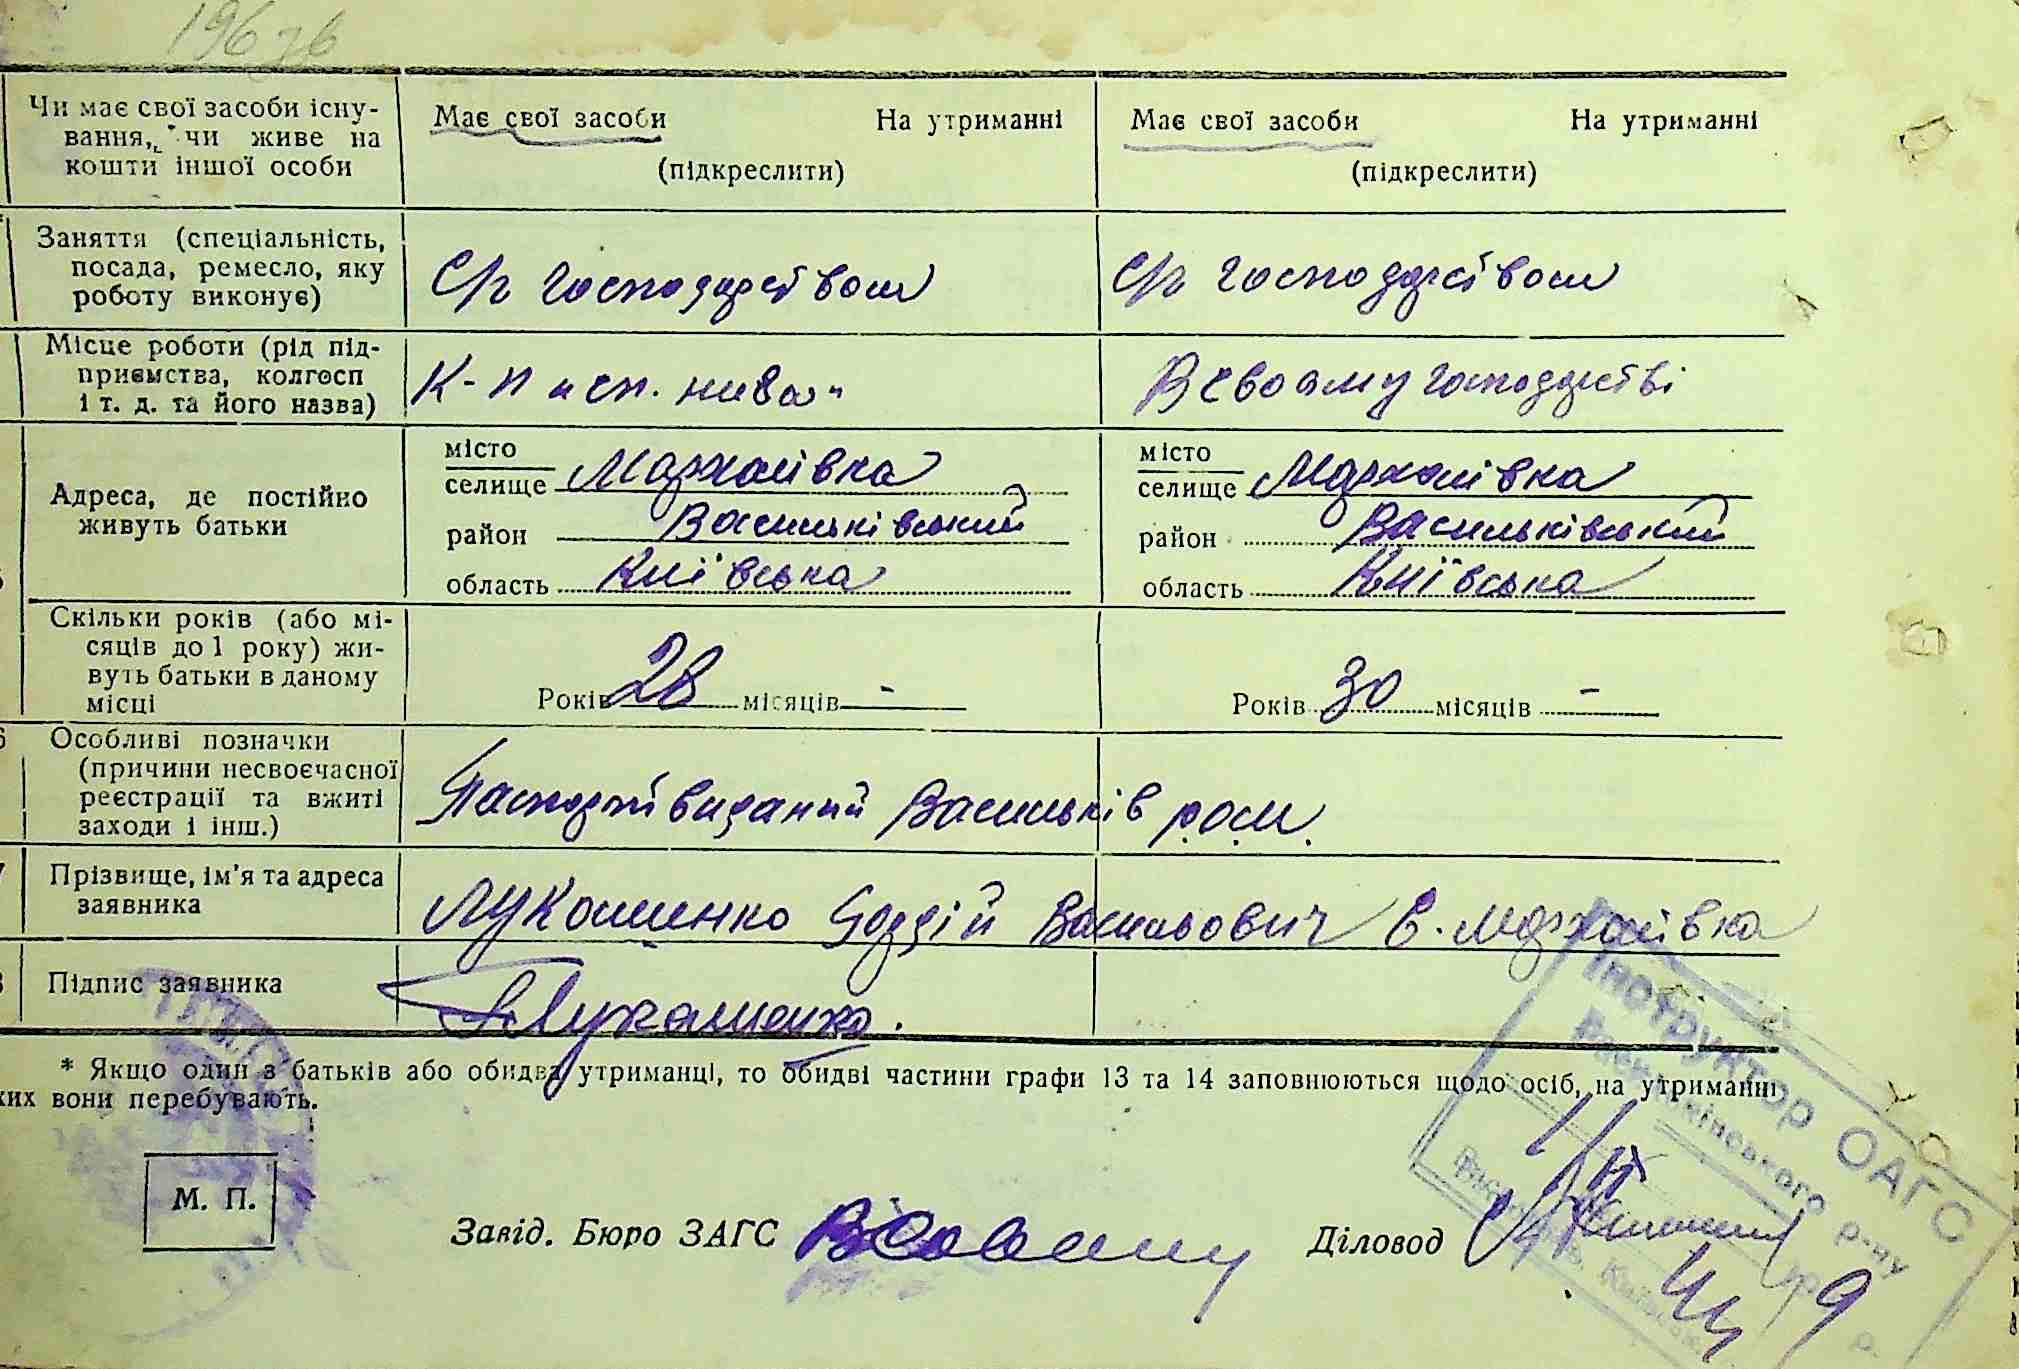 196 зв
Чи має свої засоби існу-
вання, * чи живе на
кошти іншої особи
Має свої засоби На утриманні
(підкреслити)
Має свої засоби На утриманні
(підкреслити)
Заняття (спеціальність,
посада, ремесло, яку
роботу виконує)
С/г господарством
С/г господарством
Місце роботи (рід під-
приємства, колгосп
і т. д. та його назва)
К-п „сп. нива"
В своему господарстві
Адреса, де постійно
живуть батьки
місто
селище Мархалівка
район Васильківський
область Київська
місто
селище Мархалівка
район Васильківський
область Київська
Скільки років (або мі-
сяців до 1 року) жи-
вуть батьки в даному
місці
Років 28 місяців -
Років 30 місяців -
6 Особливі позначки
(причини несвоєчасної
реєстрації та вжиті
заходи і інш.)
Паспорт виданий Васильків р.о.м.
Прізвище, ім'я та адреса
заявника
Лукашенко Гордій Васильович С. Мархалівка
Підпис заявника
Лукашенко.
* Якщо один з батьків або обидва утриманці, то обидві частини графи 13 та 14 заповнюються щодо осіб, на утриманні
ких вони перебувають.
М. П.
Завід. Бюро ЗАГС
Діловод
Інструктор ОАГС
Васильківського р-ну